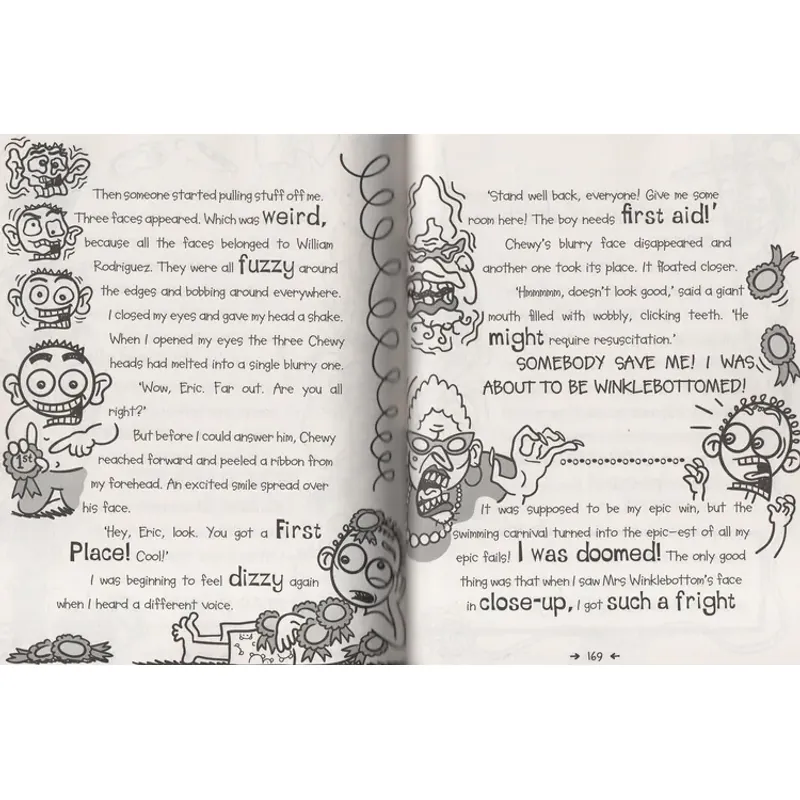 Then someone started pulling stuff off me.
Three faces appeared. Which was weird,
because all the faces belonged to William
Rodriguez. They were all fuzzy around
the edges and bobbing around everywhere.
I closed my eyes and gave my head a shake.
When I opened my eyes the three Chewy
heads had melted into a single blurry one.
'Wow, Eric. Far out. Are you all
right?'
But before I could answer him, Chewy
reached forward and peeled a ribbon from
my forehead. An excited smile spread over
his face.
'Hey, Eric, look. You got a First
Place! Cool!'
I was beginning to feel dizzy again
when I heard a different voice.
1st
'Stand well back, everyone! Give me some
room here! The boy needs first aid!'
Chewy's blurry face disappeared and
another one took its place. It floated closer.
'Hmmmmm, doesn't look good,' said a giant
mouth filled with wobbly, clicking teeth. 'He
might require resuscitation.'
SOMEBODY SAVE ME! I WAS
ABOUT TO BE WINKLEBOTTOMED!
It was supposed to be my epic win, but the
swimming carnival turned into the epic-est of all my
epic fails! I was doomed! The only good
thing was that when I saw Mrs Winklebottom's face
in close-up, I got such a fright
→ 169 ←